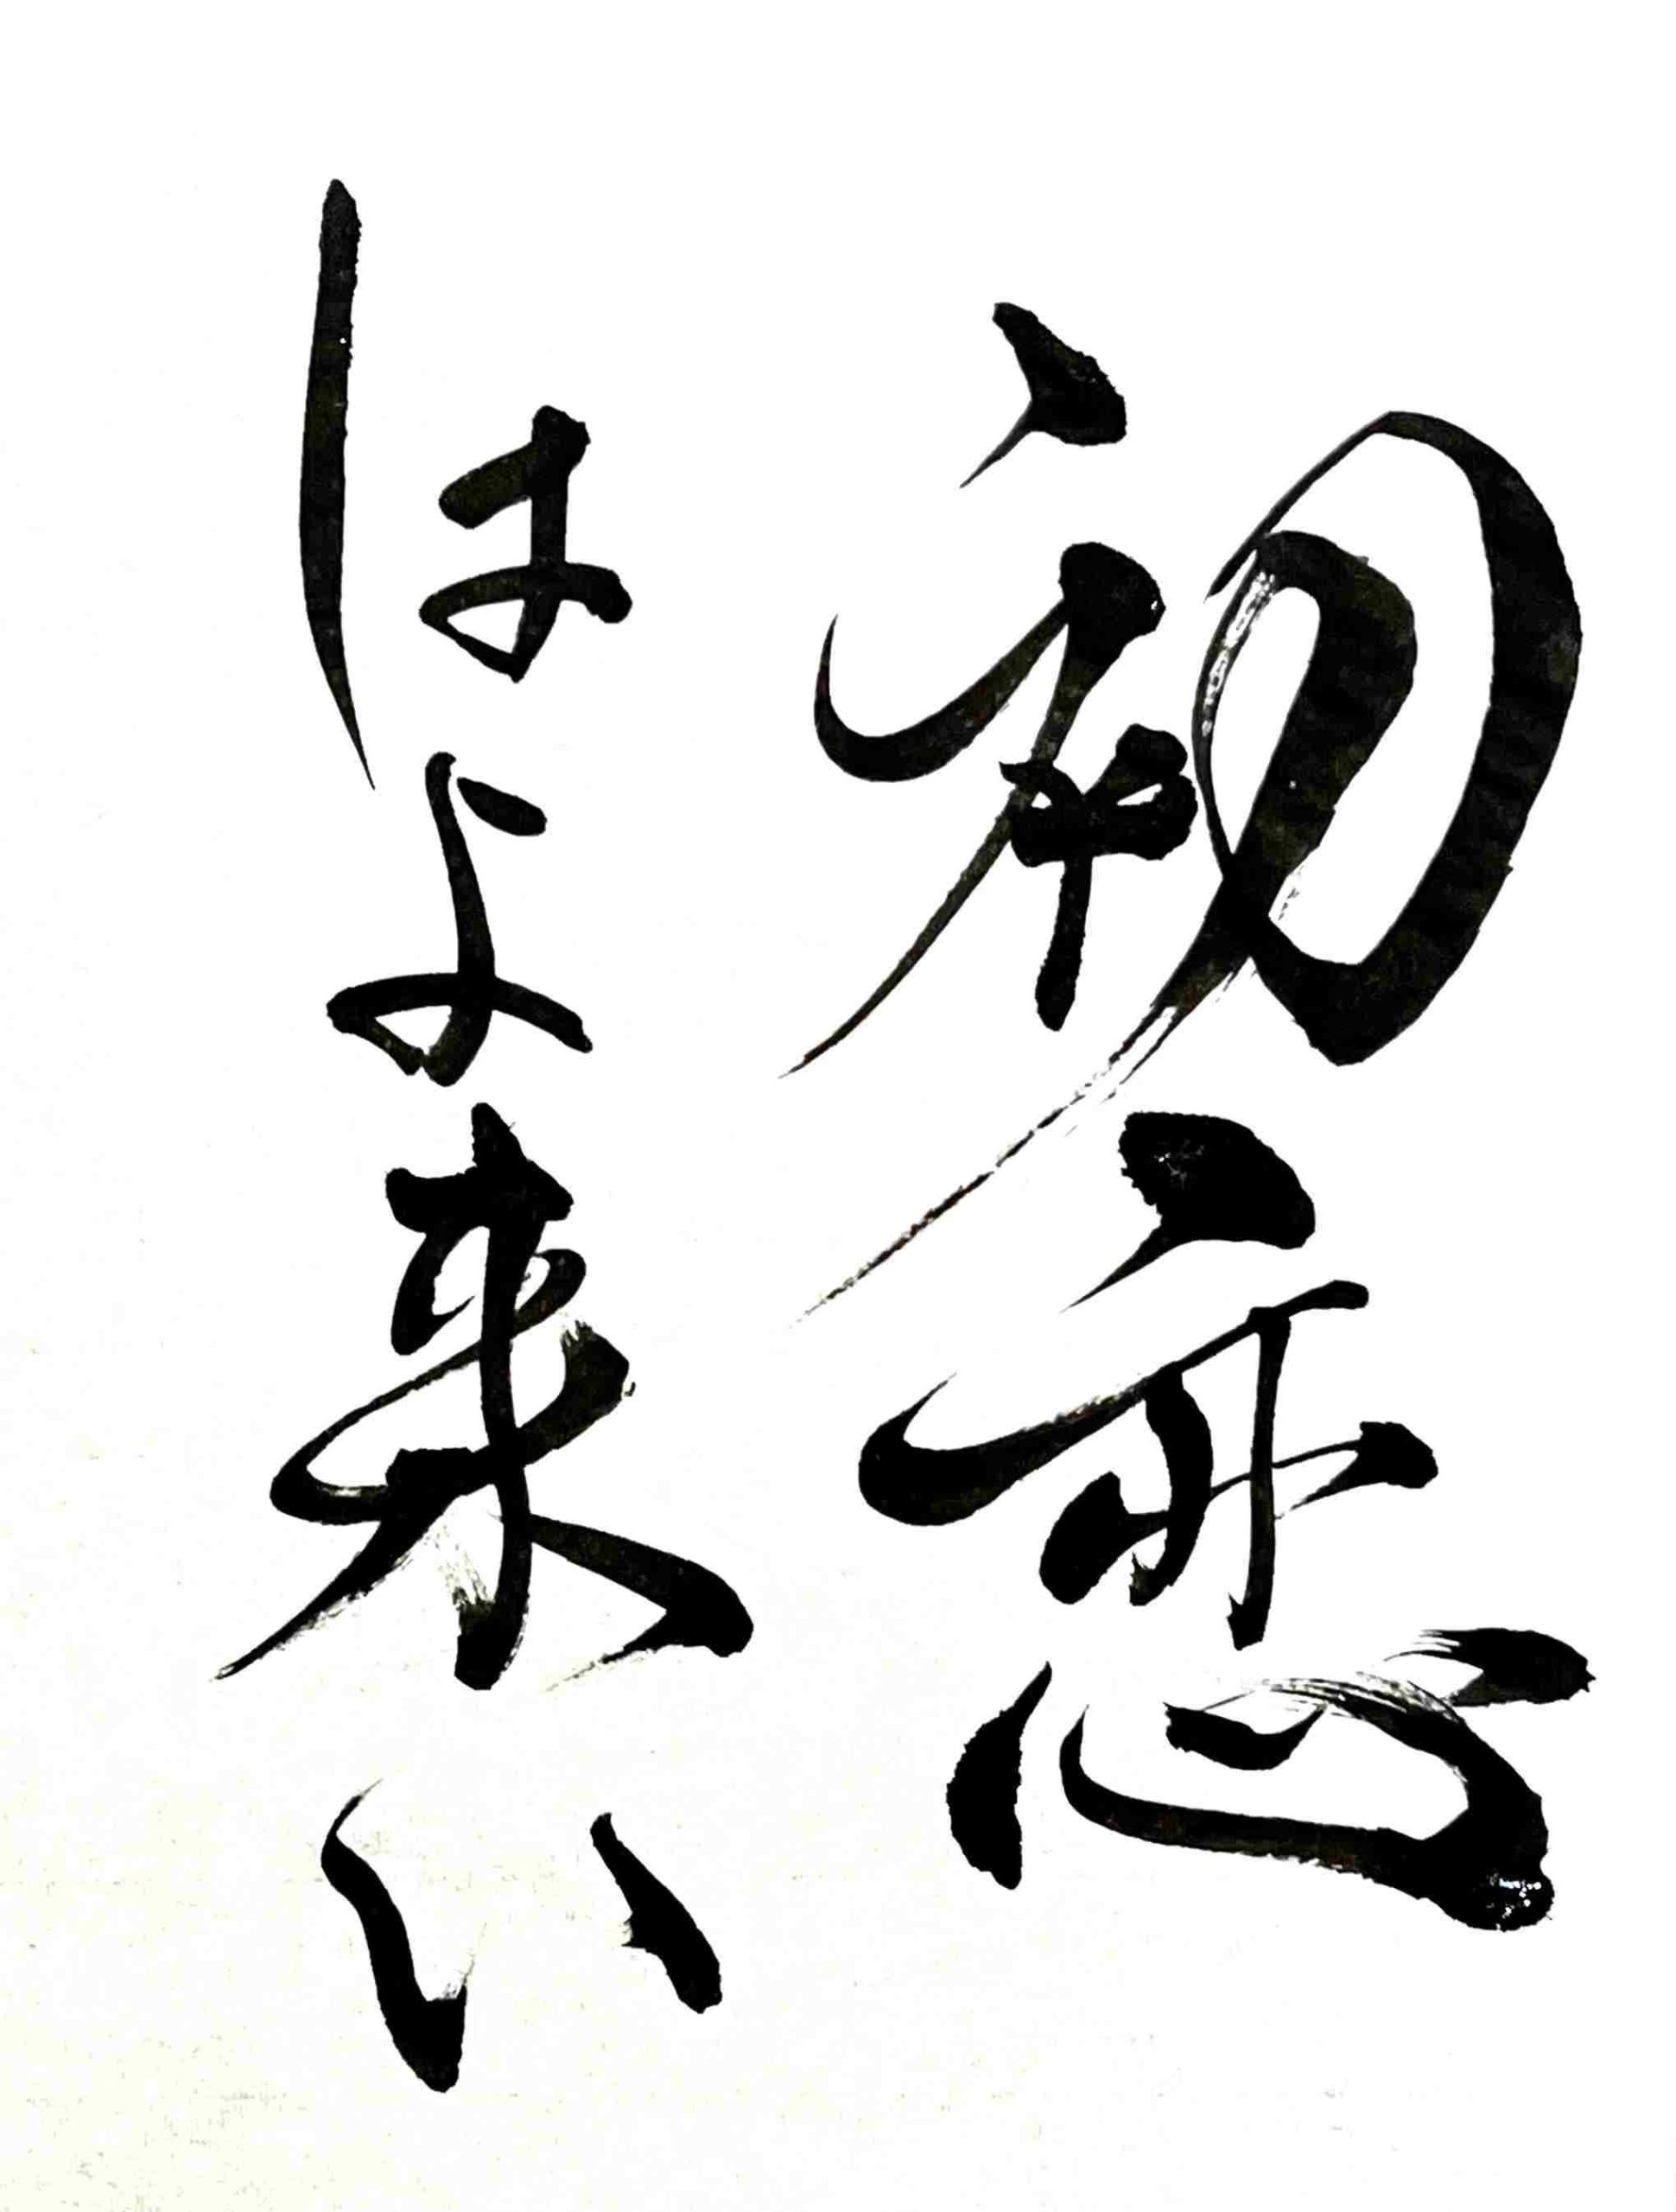 初恋
はよ来い